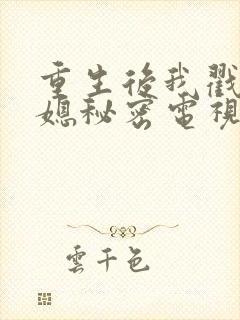 重生後我戳
媳秘密電視
雲千色